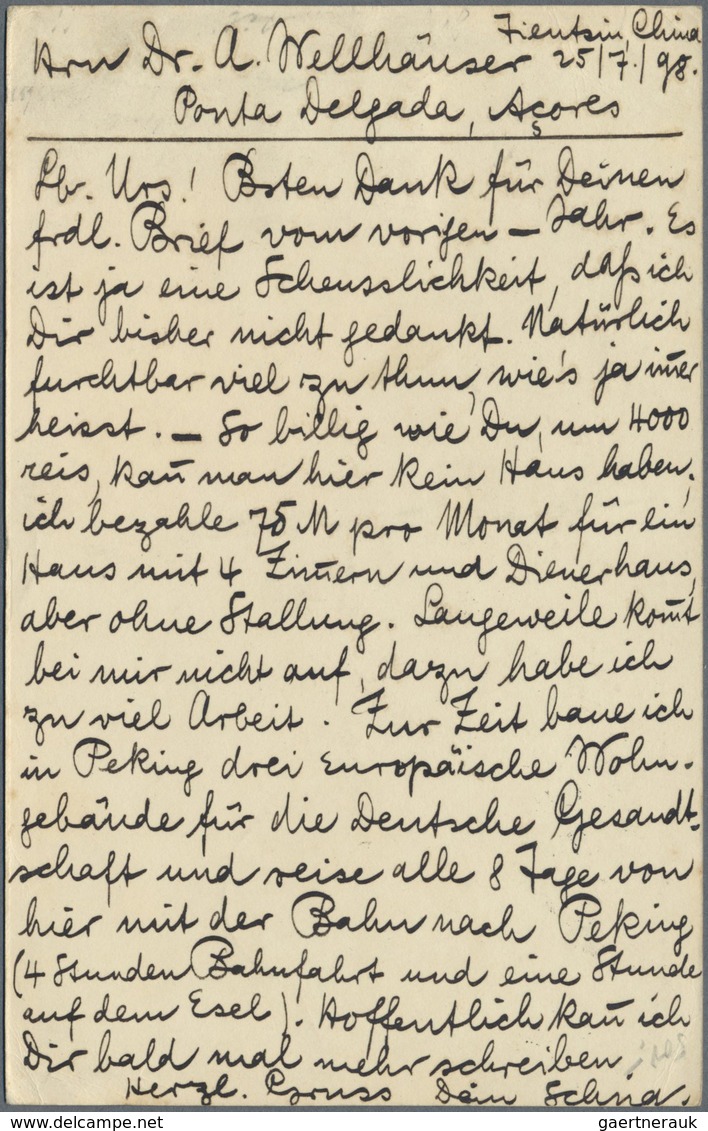 Tientsin, China
Hrn Dr. A. Wellhäuser 25/7./98.
Ponta Delgada, Açores
Lb. Urs! Bsten Dank für Deinen
frdl. Brief vom vorigen — Jahr. Es
ist ja eine Scheusslichkeit, daß ich
Dir bisher nicht gedankt. Natürlich
furchtbar viel zu thun, wie's ja im̄er
heisst. — So billig wie Du, um 4000
reis, kan̄ man hier kein Haus haben,
ich bezahle 75 M pro Monat für ein
Haus mit 4 Zim̄ern und Dienerhaus,
aber ohne Stallung. Langeweile kom̄t
bei mir nicht auf, dazu habe ich
zu viel Arbeit. Zur Zeit baue ich
in Peking drei Europäische Wohn-
gebäude für die Deutsche Gesandt-
schaft und reise alle 8 Tage von
hier mit der Bahn nach Peking
(4 Stunden Bahnfahrt und eine Stunde
auf dem Esel). Hoffentlich kan̄ ich
Dir bald mal mehr schreiben.
Herzl. Gruss Dein Schna.
gaertnerauk